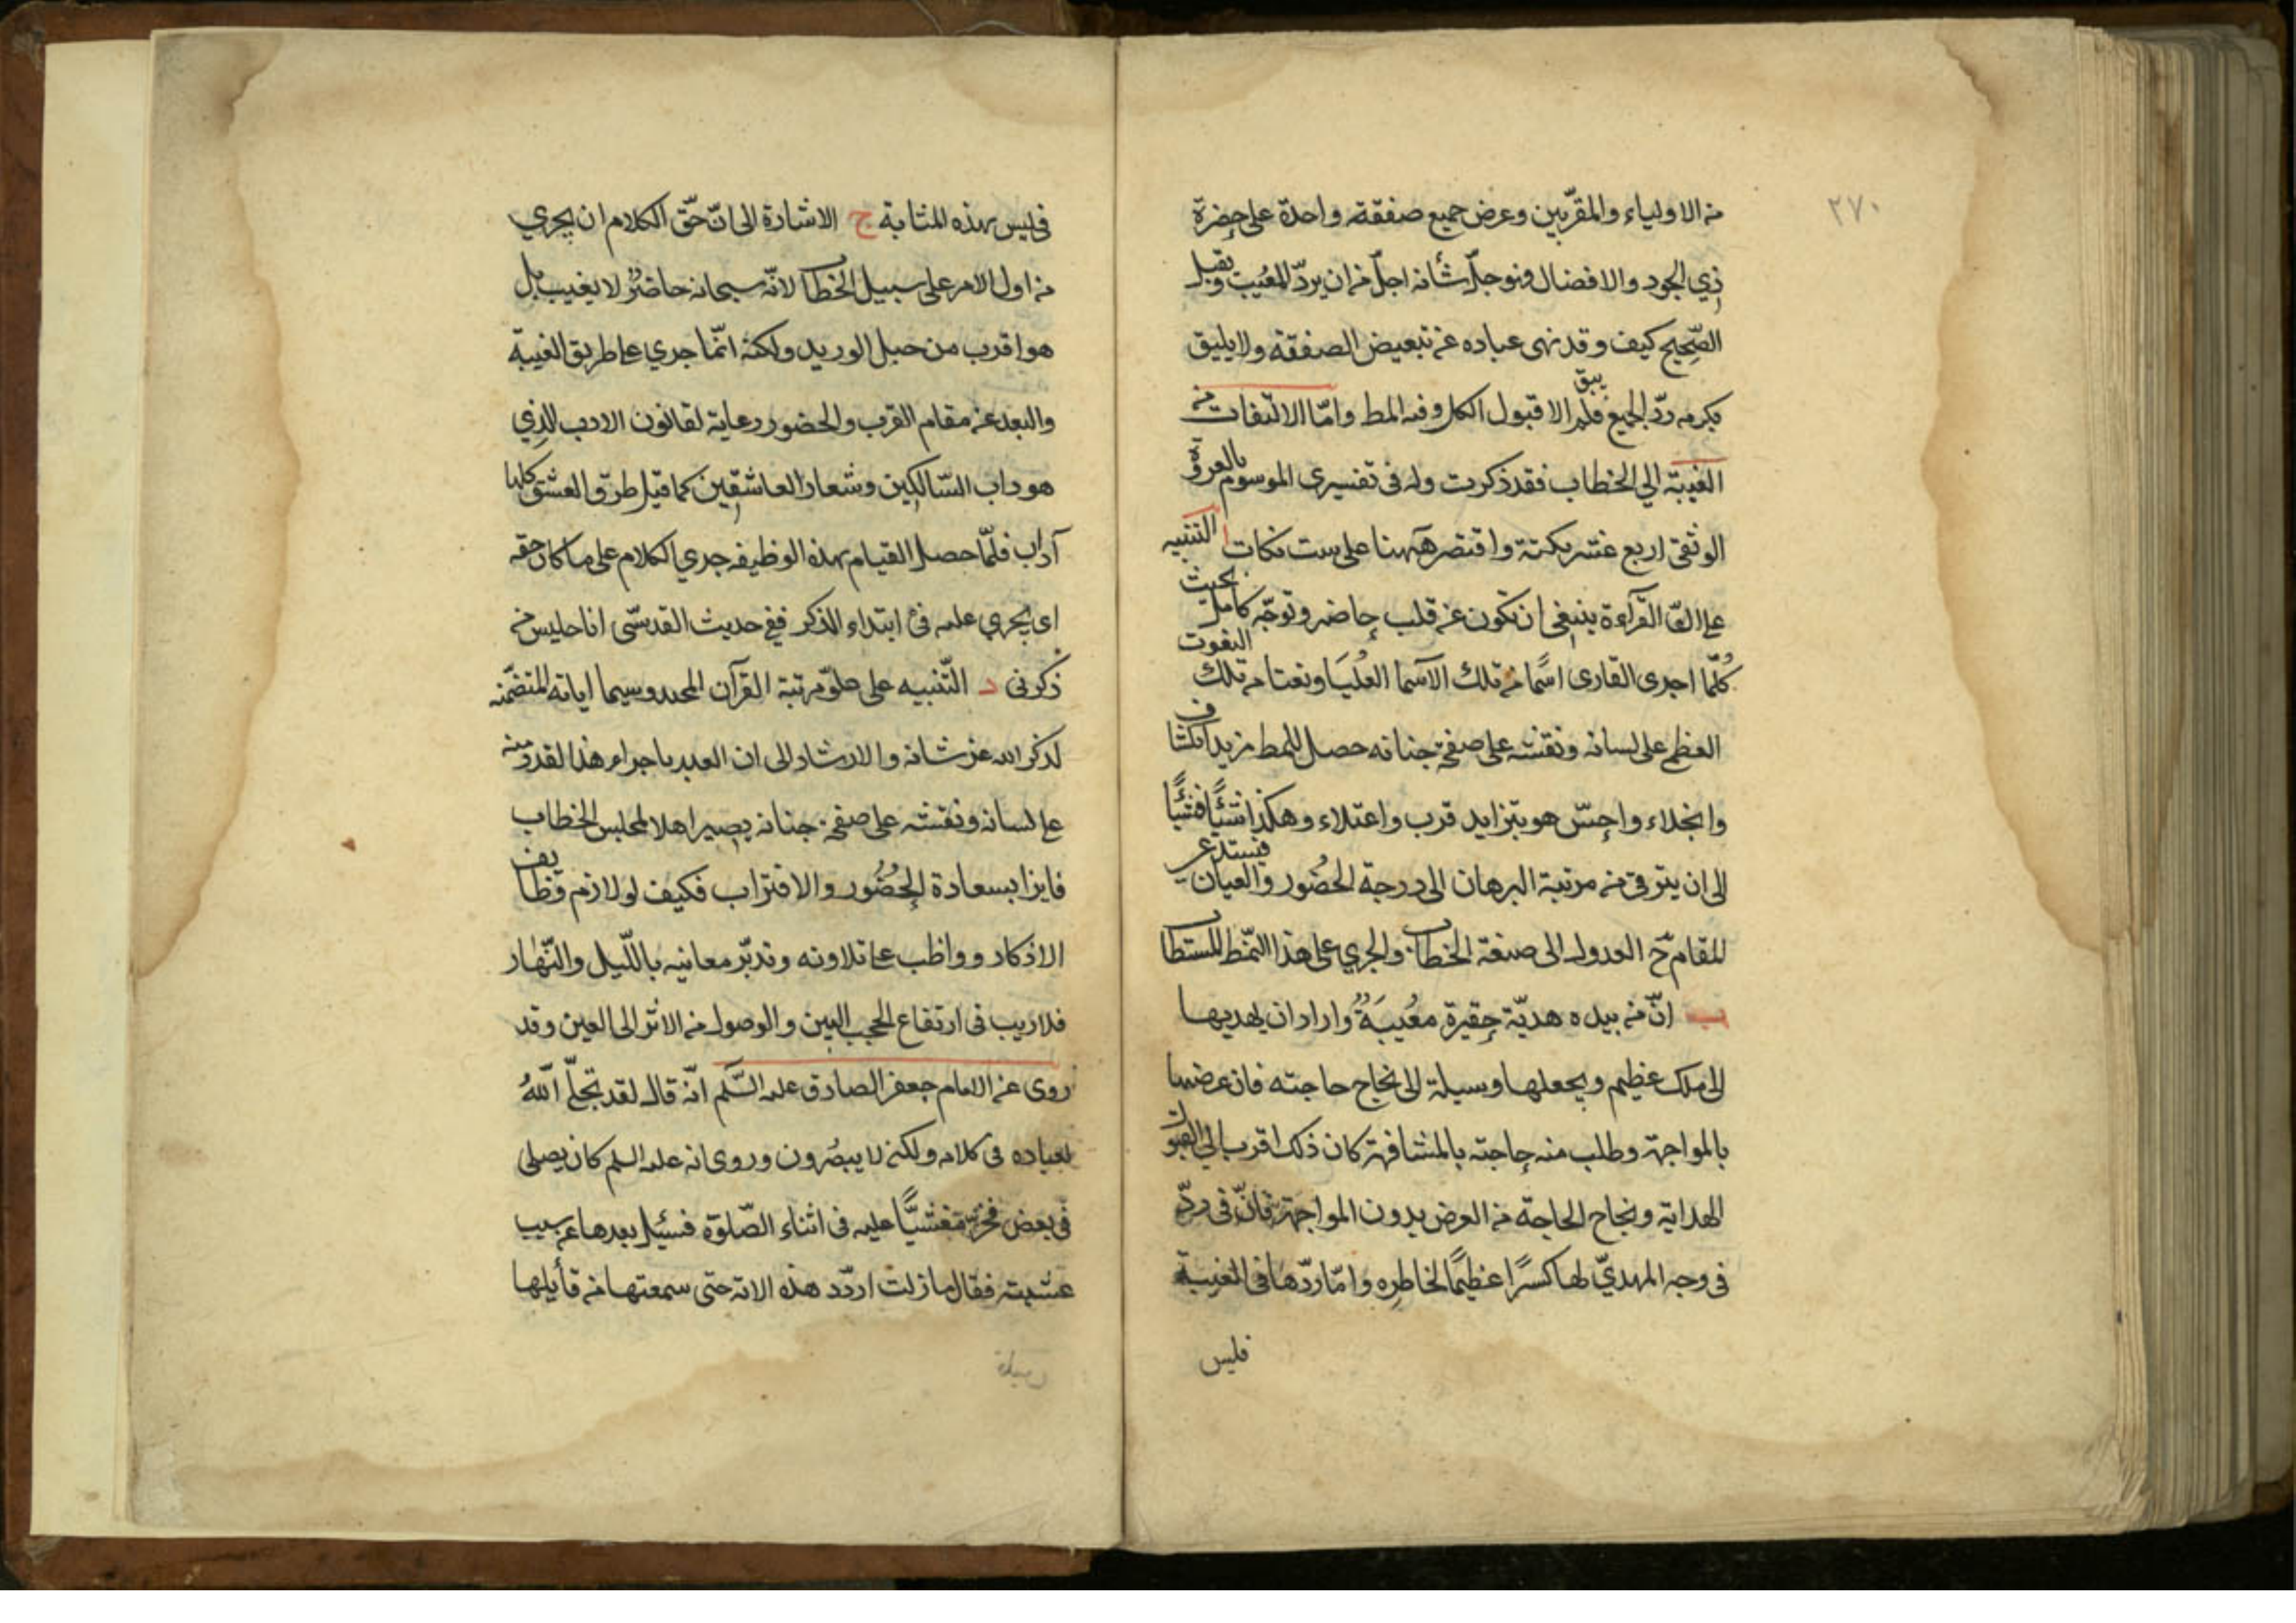 ٢٧٠
من الاولياء والمقرّبين وعرض جميع صفقة واحدة على حضرة
ذي الجود والافضال فهو جلّ شأنه اجلّ من ان يردّ المعيب ويقبل
الصّحيح كيف وقد نهى عباده عن تبعيض الصفقة ولا يليق
بكرمه ردّ الجميع فلم يبق الا قبول الكل وفيه المط وامّا الالتفات من
الغيبة الي الخطاب فقد ذكرت وله فى تفسيرى الموسوم بالعروة
الوثقى اربع عشر نكتة واقتصر ههنا على ست نكات ا التنبيه
على انّ القرآءة ينبغى ان تكون عن قلب حاضر وتوجّه كامل بحيث
كُلّما اجرى القارى اسًما من تلك الآسما العُليَا ونعتا من تلك النعوت
العظمى على لسانه ونقشه على صفحة جنانه حصل للمط مزيد انكشاف
وانجلاء واحسّ هو بتزايد قرب واعتلاء وهكذا شئًا فشئًا
الى ان يترقى من مرتبة البرهان الى درجة الحضُور والعيان فيستدعى
المقام ح العدول الى صيغة الخطاب والجري على هذا النّمط المستطاب
ب انّ من بيده هديّة حقيرة معُيبَةٌ واراد ان يهديها
الى ملك عظيم ويجعلها وسيلة الى نجاح حاجته فان عرضها
بالمواجهة وطلب منه حاجته بالمشافهة كان ذلك اقرب الي القبول
الهداية ونجاح الحاجة من العرض بدون المواجهة فانّ فى ردّ
فى وجه المهديّ لها كسرًا عظيمًا لخاطره وامّا ردّها فى الغيبة
فليس
فليس بهذه المثابة ج الاشارة الى انّ حقّ الكلام ان يجري
من اول الامر على سبيل الخطاب لانّه سبحانه حاضرٌ لا يغيب بل
هو اقرب من حبل الوريد ولكنه انّما جري على طريق الغيبة
والبعد عن مقام القرب والحضور رعاية لقانون الادب الذي
هو داب السّالكين وشعار العاشقين كما قيل طرق العشق كلها
آداب فلمّا حصل القيام بهذه الوظيفه جري الكلام على ما كان حقه
اى يجري عليه فى ابتداء الذكر ففى حديث القدسّى انا جليس من
ذكرونى د التّنبيه على علوّ مرتبة القرآن المجيد وسيما اياته المتضمّنه
لذكر الله عز شانه والارشاد الى ان العبد باجراء هذا القدر منه
على لسانه ونقشه على صفحة جنانه يصير اهلا لمجلس الخطاب
فايزا بسعادة الحُضُور والاقتراب فكيف لو لازم وظايف
الاذكار وواظب على تلاوته وتدبّر معانيه باللّيل والنّهار
فلا ريب فى ارتفاع الحجب البين والوصول من الاثر الى العين وقد
روى عن الامام جعفر الصادق عليه السّلم انّه قال لقد تجلّى اللهُ
لعباده فى كلامه ولكن لا يبصُرون وروى انه عليه السلم كان يصلى
فى بعض فخرّ مغشيًّا عليه فى اثناء الصّلوة فسئيل بعدها عن سبب
غشيته فقال ما زلت اردّد هذه الاية حتى سمعتها من قأيلها